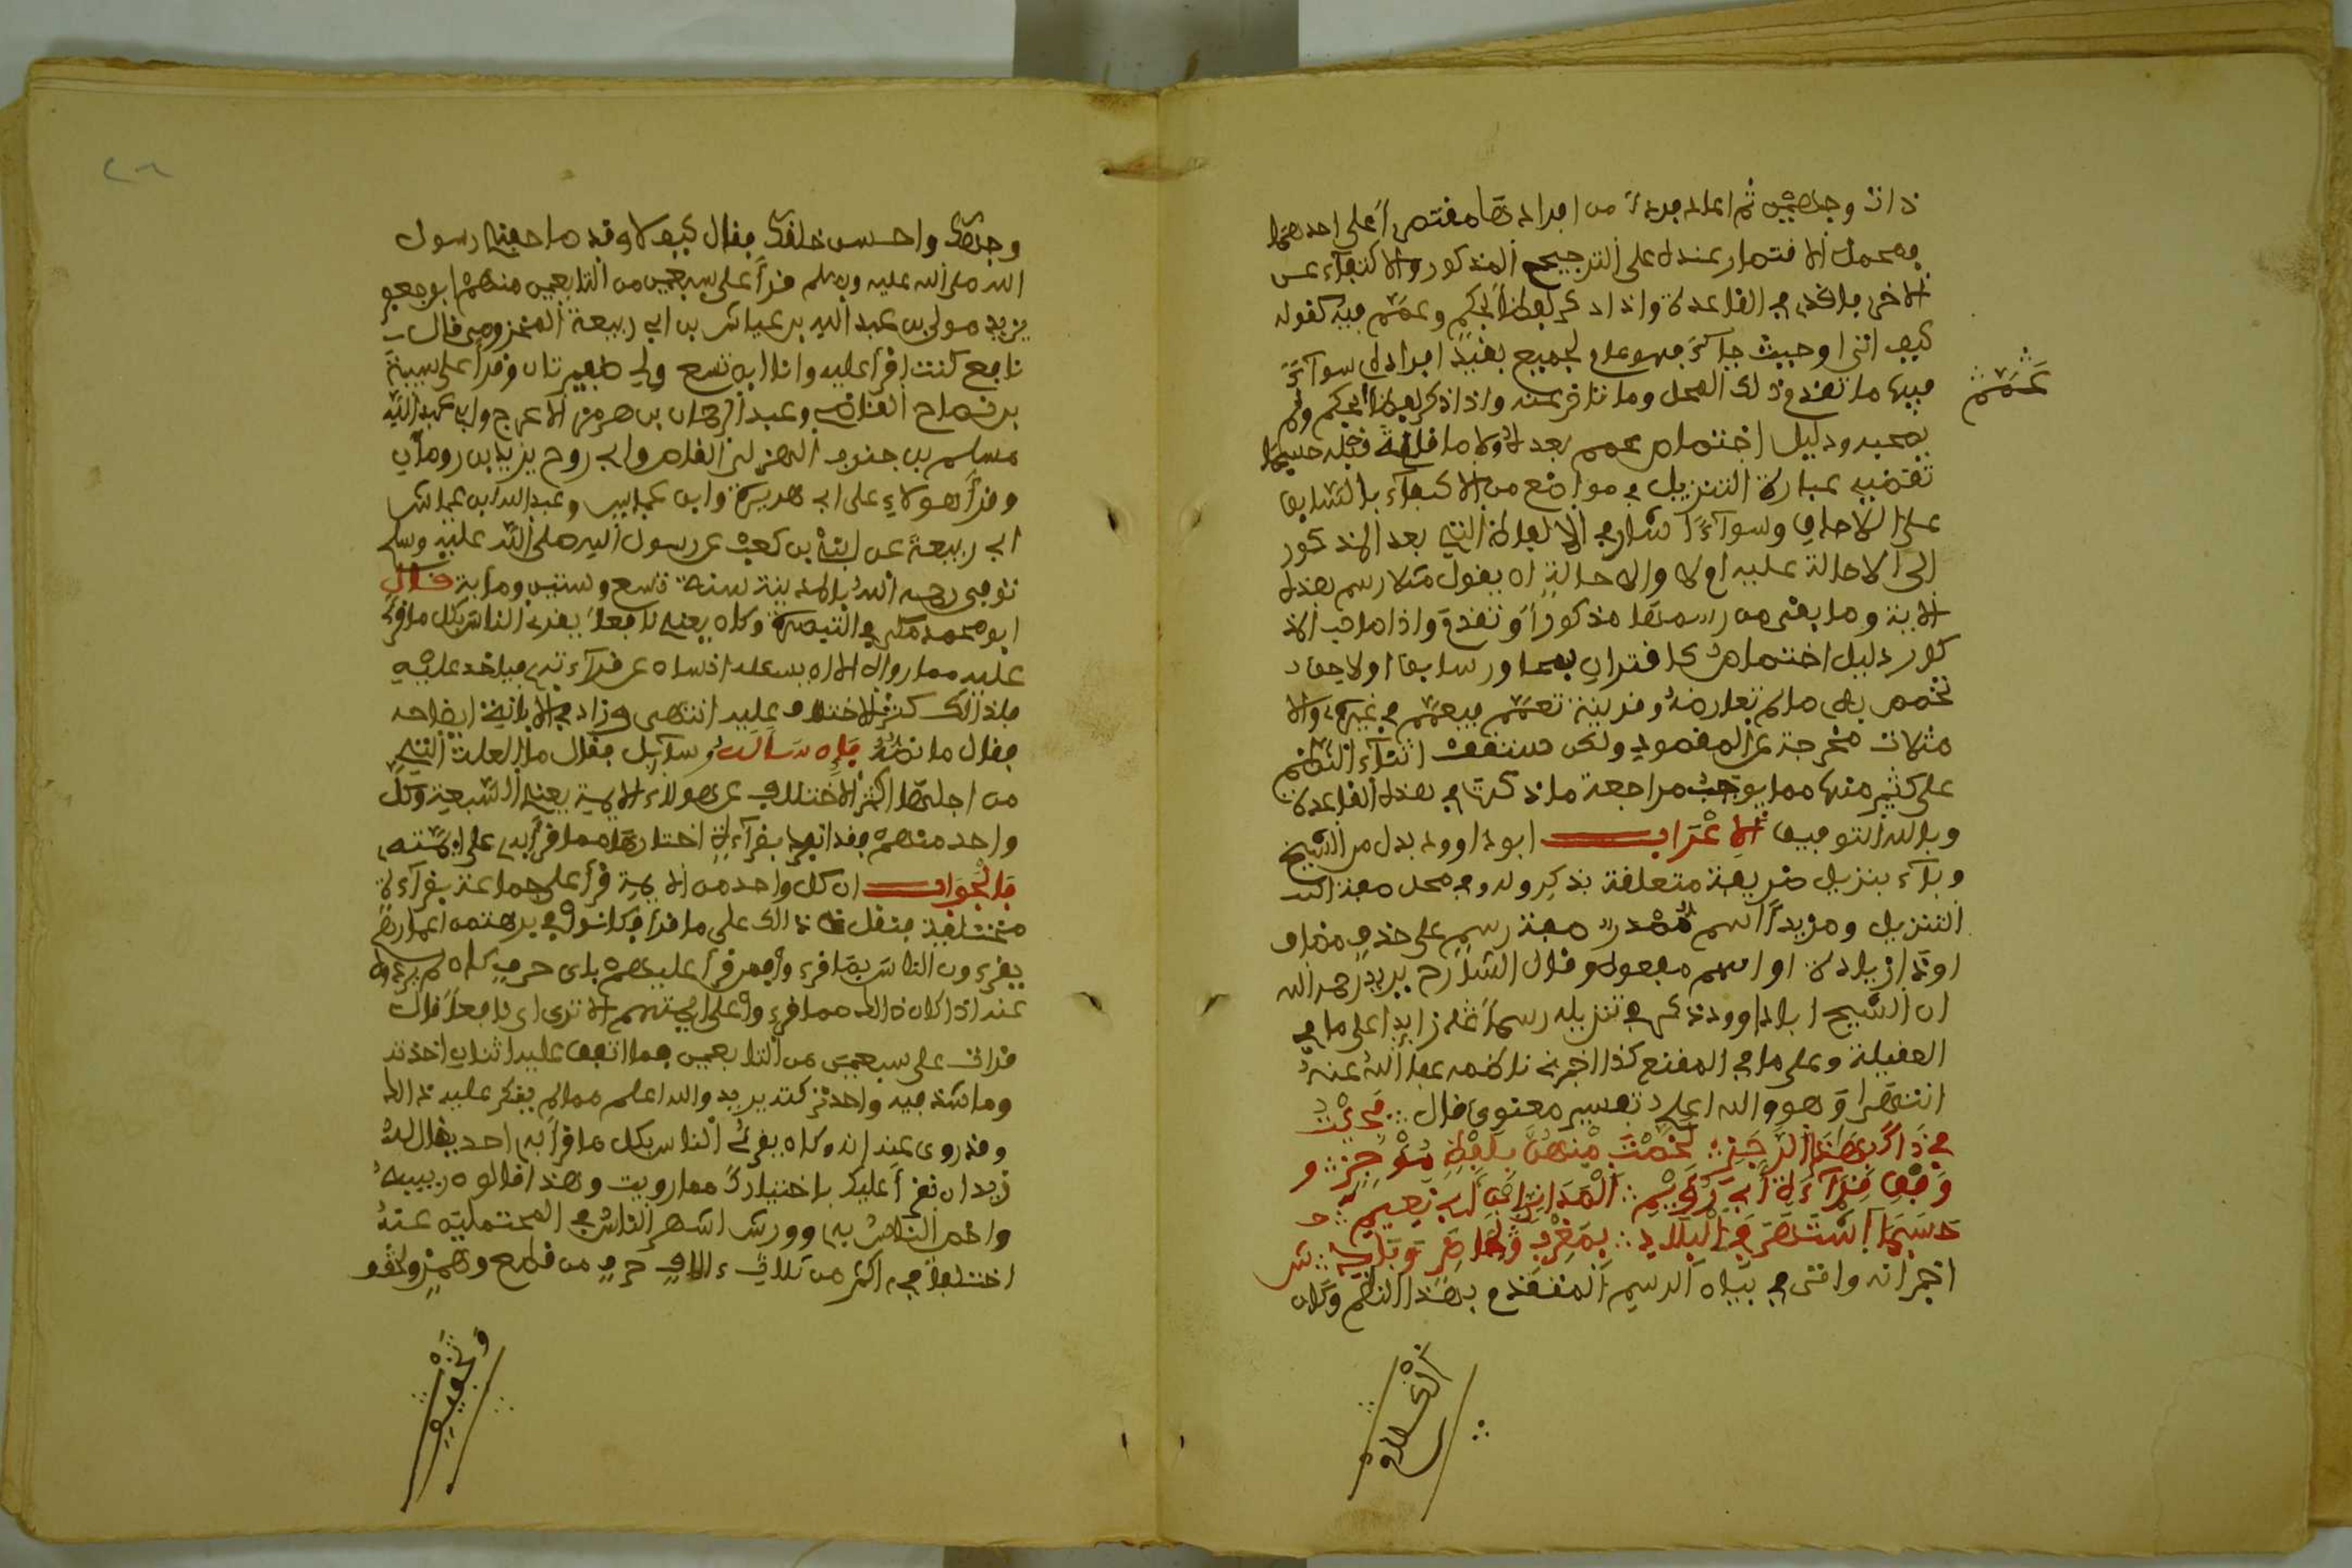 ذات وجهين ثم اعاد فردا من افرادها مقتصرا على احدهما
فمحمل الاقتصار عنده على الترجيح المذكور والاكتفاء عن
الاخر بما قدم في القاعدة واذا ذكر لفظ الحكم وعمم فيه كقوله
كيف اتى او حيث جا فهو عام لجميع بقية افراده سواء
فيها ما تقدم ذلك المحل وما تاخر عنه واذا ذكر لفظ الحكم ولم
عمم
يصحبه دليل اختصاص عمم بعد لا ولا ما قبله حسبما
تقتضيه عبارة التنزيل في مواضع من الاكتفاء بالسابق
على اللاحق وسواء اشار في الالفاظ التي بعد المذكور
الى الاحالة عليه ام لا والاحالة ان يقول مثلا رسم هذه
الاية وما بقي من رسمها مذكور او تقدم واذا صاحب المذ
كور دليل اختصاص كاقتران بمجاور سابق او لاحق
تخصص به ما لم تعارضه قرينة تعمم فيعمم في غيره والا
مثلات مخرجة عن المقصود ولكن ستقف اثناء النظم
على كثير منها مما يوجب مراجعة ما ذكرته في هذه القاعدة
وبالله التوفيق الاعراب ابو داوود بدل من الشيخ
وباء بتنزيل ضريفية متعلقة بذكر وله في محل صفة
التنزيل ومزيدا اسم مصدر صفة رسم على حذف مضاف
او ذا زيادة او اسم مفعول وقال الشارح يريد رحمه الله
ان الشيخ ابا داوود ذكر في تنزيله رسما زايدا على ما في
العقيلة وعلى ما في المقنع كذا اخبرني ناظمه عفا الله عنه
انتهى وهو والله اعلم تفسير معنوي قال فجئت
في ذاك بهذا الرجز لخصت منهن بلفظ موجز و
وفق قراءة ابي رويم المداني ابن ابي نعيم
حسبما اشتهر في البلاد بمغرب لحاضر وباد ش
اخبر انه اتى في بيان الرسم المتقدم بهذا النظم وكان
وجهك واحسن خلقك فقال كيف لا وقد صافحني رسول
الله صلى الله عليه وسلم قرا على سبعين من التابعين منهم ابو جعفر
يزيد مولى بن عبد الله بن عياش بن ابي ربيعة المخزومي قال
نافع كنت اقرا عليه وانا ابن تسع ولي ضفيرتان وقرا على شيبة
بن نصاح القاضي وعبد الرحمان بن هرمز الاعرج وابي عبد الله
مسلم بن جندب الهذلي القاص وابي روح يزيد بن رومان
وقرا هولاء على ابي هريرة وابن عباس وعبد الله ابن عياش
ابي ربيعة عن ابي بن كعب عن رسول الله صلى الله عليه وسلم
توفي رحمه الله بالمدينة سنة تسع وستين ومايه قال
ابو محمد مكي في التبصرة وكان يعني نافعا يقرئ الناس بكل ما قرئ
عليه مما رواه الا ان يسئله انسان عن قراءته فياخذ عليه
فلذلك كثر الاختلاف عليه انتهى وزاد في الابانة ايضاحه
فقال ما نصه فان سال سآيل فقال ما العلة التي
من اجلها كثر الاختلاف عن هولاء الايمة يعني السبعة وكل
واحد منهم قد انفرد بقراءة اختارها مما قرا به على ايمته
فالجواب ان كل واحد من الايمة قرا على جماعة بقراءة
مختلفة فنقل ذالك على ما قرا فكانوا في برهة من اعمارهم
يقرءون الناس بما قرءوا فمن قرا عليهم باي حرف كان لم يردوه
عنه اذا كان ذالك مما قرءوا على ايمتهم الا ترى ان نافعا قال
قرات على سبعين من التابعين فما اتفق عليه اثنان اخذته
وما شذ فيه واحد تركته يريد والله اعلم مما لم ينكر عليه ذالك
وقد روى عنه انه كان يقرئ الناس بكل ما قرا به احد يقال له
نريد ان نقرا عليك باختيارك مما رويت وهذا قالون ربيبه
واخص الناس به وورش اشهر الناس في المحتملين عنه
اختلفا في اكثر من ثلاثة ءالاف حرف من قطع وهمز
وتخفيف